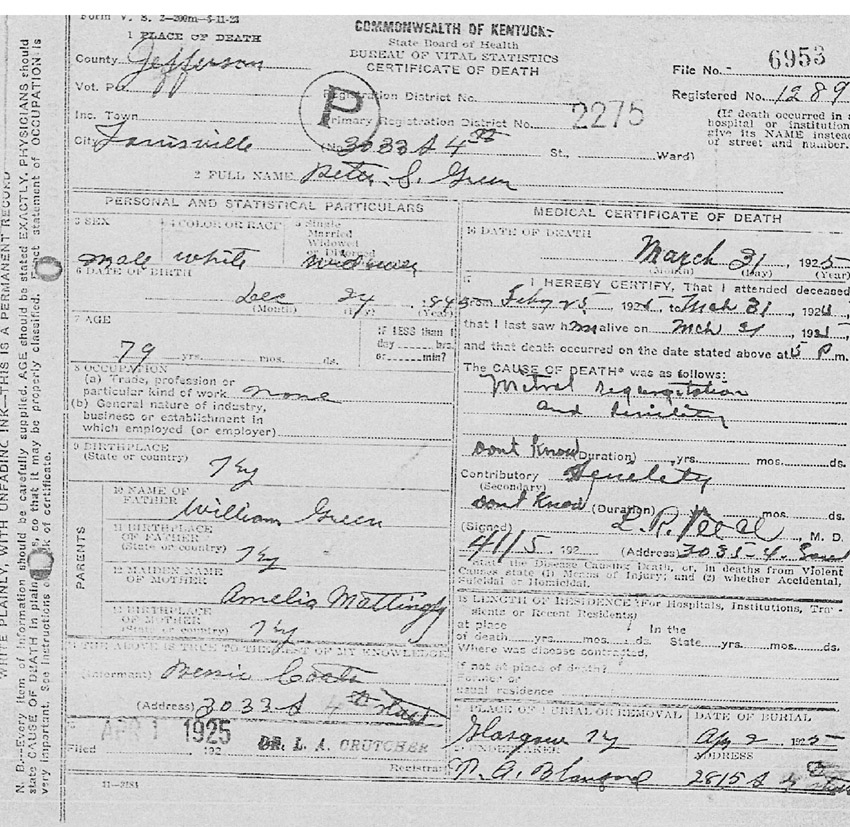 Form V. S. 2-200m-5-11-23
1 PLACE OF DEATH
COMMONWEALTH OF KENTUCKY
State Board of Health
BUREAU OF VITAL STATISTICS
CERTIFICATE OF DEATH
County Jefferson
File No. 6953
Vot. Pct
Registration District No.
Registered No. 1289
P
Inc. Town
Primary Registration District No. 2275
(If death occurred in a
hospital or institution
give its NAME instead
of street and number.
City Louisville
(No. 3033 S 4th St., Ward)
2 FULL NAME Peter S. Green
PERSONAL AND STATISTICAL PARTICULARS
3 SEX
4 COLOR OR RACE
5 Single
Married
Widowed
or Divorced
male white widower
6 DATE OF BIRTH
Dec 24
(Month) (Day) (Year)
7 AGE
IF LESS than 1
day hrs.
or min?
79 yrs. mos. ds.
8 OCCUPATION
(a) Trade, profession or
particular kind of work none
(b) General nature of industry,
business or establishment in
which employed (or employer)
9 BIRTHPLACE
(State or country) Ky
PARENTS
10 NAME OF
FATHER William Green
11 BIRTHPLACE
OF FATHER
(State or country) Ky
12 MAIDEN NAME
OF MOTHER Amelia Mattingly
13 BIRTHPLACE
OF MOTHER
(State or country) Ky
14 THE ABOVE IS TRUE TO THE BEST OF MY KNOWLEDGE
(Informant) Bessie Coats
(Address) 3033 S 4th
APR 1 1925
Filed 192 DR. L. A. CRUTCHER
Registrar
11-2184
MEDICAL CERTIFICATE OF DEATH
16 DATE OF DEATH
March 31, 1925
(Month) (Day) (Year)
17 I HEREBY CERTIFY, That I attended deceased
from Feby 25 192 to Mch 31, 192
that I last saw him alive on Mch 31 192
and that death occurred on the date stated above at 5 P.m.
The CAUSE OF DEATH* was as follows:
Mitral regurgitation
and senility
Dont Know (Duration) yrs. mos. ds.
Contributory Senility
(Secondary)
Dont Know (Duration) mos. ds.
(Signed) L. R. , M. D.
4/1/5 192 (Address) 3035-4.
*State the Disease Causing Death, or, in deaths from Violent
Causes state (1) Means of Injury; and (2) whether Accidental,
Suicidal or Homicidal.
18 LENGTH OF RESIDENCE (For Hospitals, Institutions, Tran-
sients or Recent Residents)
at place In the
of death yrs. mos. ds. State yrs. mos. ds.
Where was disease contracted,
if not at place of death?
Former or
usual residence
19 PLACE OF BURIAL OR REMOVAL
DATE OF BURIAL
Glasgow Ky
Apr 2 1925
20 UNDERTAKER
ADDRESS
2815 S 4th
WRITE PLAINLY, WITH UNFADING INK—THIS IS A PERMANENT RECORD
N. B.—Every item of information should be carefully supplied. AGE should be stated EXACTLY. PHYSICIANS should
state CAUSE OF DEATH in plain s, so that it may be properly classified. ct statement of OCCUPATION is
very important. See instructions k of certificate.